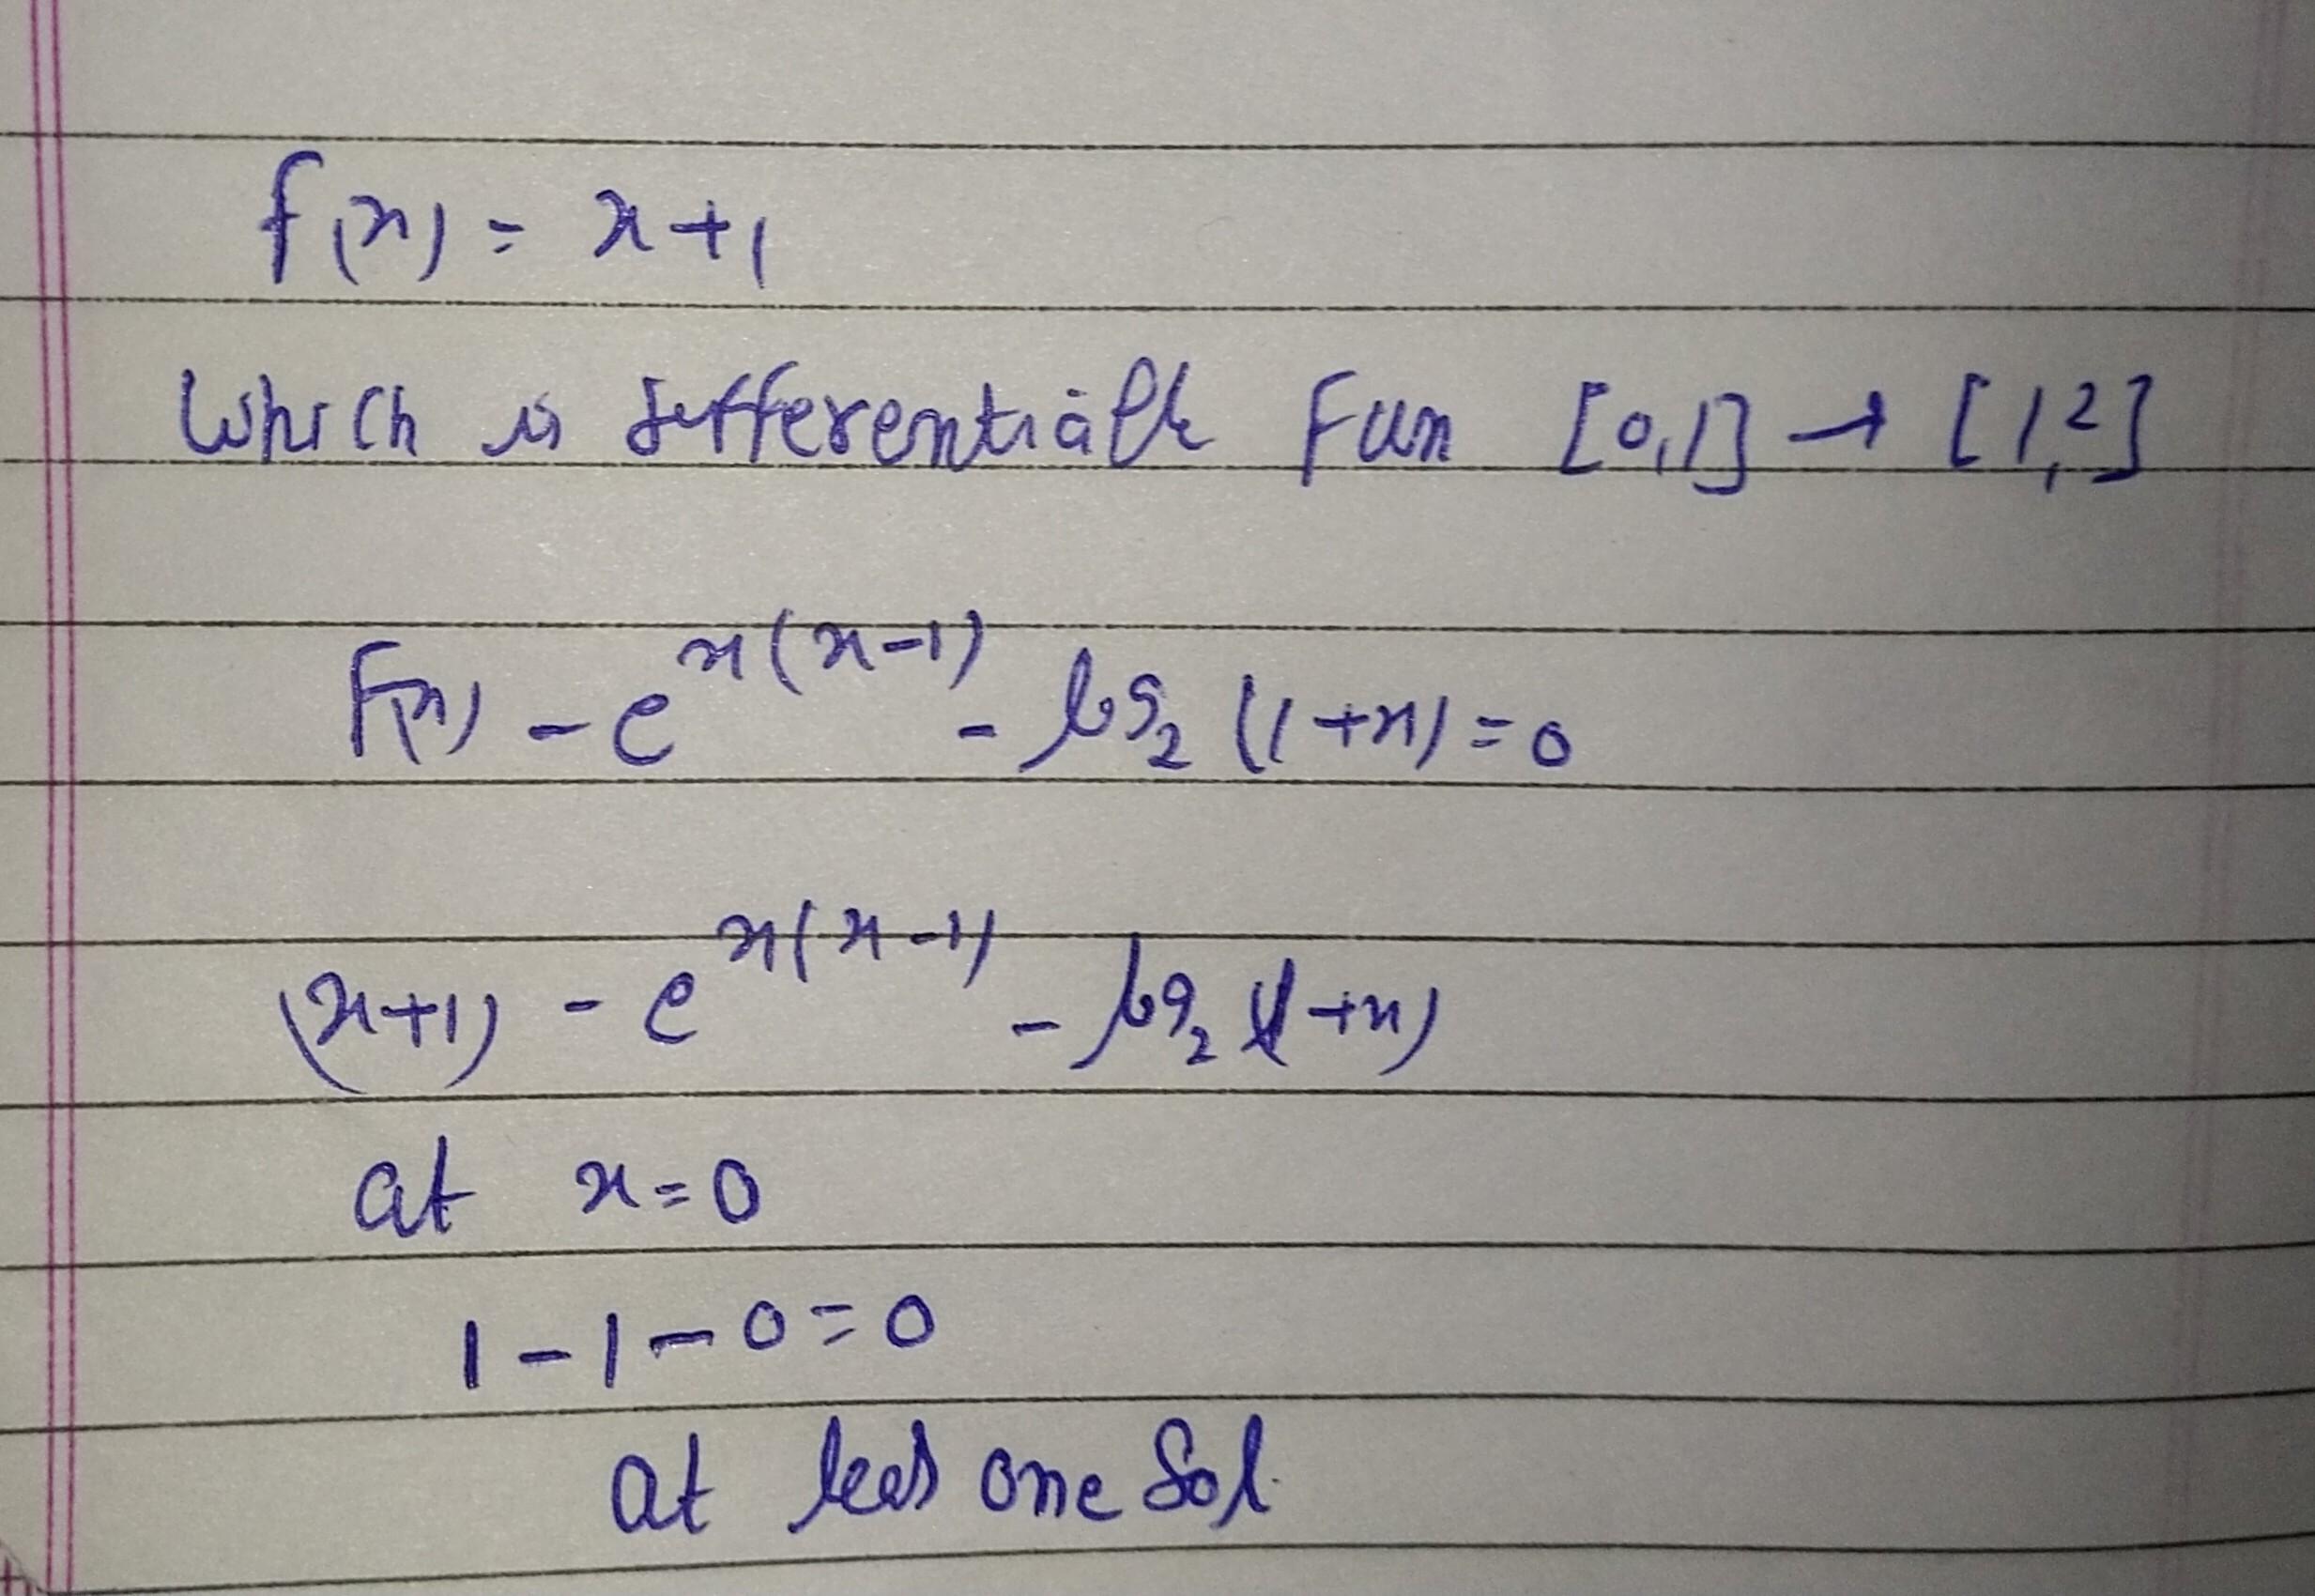 f(x) = x+1
Which is differentiable Fun [0,1] → [1,2]
f(x) - e^{x(x-1)} - log_2 (1+x) = 0
(x+1) - e^{x(x-1)} - log_2 (1+x)
at x=0
1-1-0=0
at least one Sol.